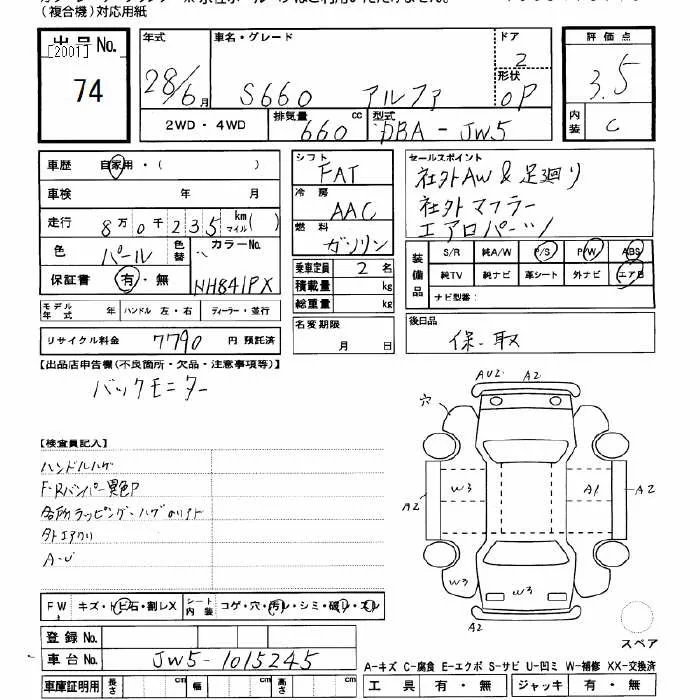 (複合機)対応用紙
出品No.
[2001]
74
年式
28/6月
車名・グレード
S660 アルファ
ドア
2
形状
OP
評価点
3.5
内装
C
2WD・4WD
排気量
660 cc
型式
DBA-JW5
車歴 自家用・( )
車検 年 月
走行 8万0千235 km マイル ( )
色 パール 色替
カラーNo.
NH841PX
保証書 有・無
モデル年式 年 ハンドル 左・右 ディーラー・並行
リサイクル料金 7790 円 預託済
シフト
FAT
冷房
AAC
燃料
ガソリン
乗車定員 2 名
積載量 kg
総重量 kg
名変期限
月 日
セールスポイント
社外AW & 足廻り
社外マフラー
エアロパーツ
装備品
S/R 純A/W P/S P/W ABS
純TV 純ナビ 革シート 外ナビ エアB
ナビ型番:
後日品
保-取
【出品店申告欄(不良箇所・欠品・注意事項等)】
バックモニター
【検査員記入】
ハンドルハゲ
F・Rバンパー異色P
各所ラッピング・ハゲ
外エアクリ
A-U
FW キズ・トビ石・割レX
シート内装 コゲ・穴・汚レ・シミ・破レ・スレ
登録No.
車台No. JW5-1015245
車庫証明用 長さ cm 幅 cm 高さ cm
穴
AU2
A2
A2
W3
A1
A2
W3
W3
A2
スペア
A-キズ C-腐食 E-エクボ S-サビ U-凹ミ W-補修 XX-交換済
工具 有・無 ジャッキ 有・無